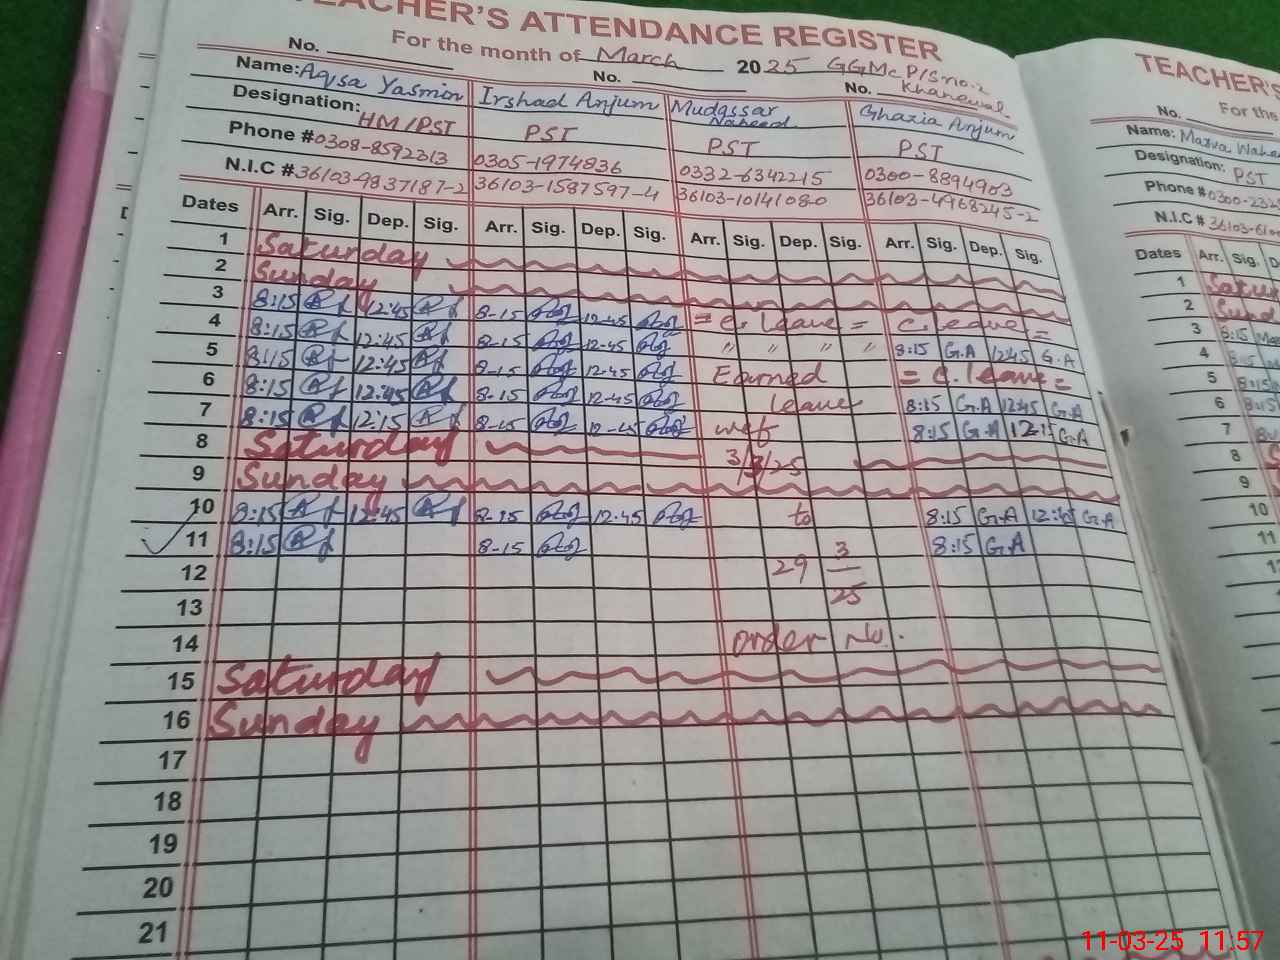 TEACHER'S ATTENDANCE REGISTER
For the month of March 2025 GGMC P/S no. 2 Khanewal.
No. No. No.
Name: Aqisa Yasmin Irshad Anjum Mudassar Naheed Ghazia Anjum
Designation: HM/PST PST PST PST
Phone # 0308-8592313 0305-1974836 0332-6342215 0300-8894903
N.I.C # 36103-9837187-2 36103-1587597-4 36103-1014108-0 36103-4968245-2
Dates Arr. Sig. Dep. Sig. Arr. Sig. Dep. Sig. Arr. Sig. Dep. Sig. Arr. Sig. Dep. Sig.
1 Saturday
2 Sunday
3 8:15 12:45 8-15 12-45 = C. leave = C. leave =
4 8:15 12:45 8-15 12-45 " " " " 8:15 G.A 12:45 G.A
5 8:15 12:45 8-15 12-45 Earned = C. leave =
6 8:15 12:45 8-15 12-45 leave 8:15 G.A 12:45 G.A
7 8:15 12:15 8-15 12-15 wef 8:15 G.A 12:15 G.A
8 Saturday 3/3/25
9 Sunday
10 8:15 12:45 8-15 12-45 to 8:15 G.A 12:45 G.A
11 8:15 8-15 8:15 G.A
12 29 3
13 25
14 order No.
15 Saturday
16 Sunday
17
18
19
20
21
TEACHER'S
For the
No.
Name: Marva
Designation: PST
Phone #
N.I.C #
Dates Arr. Sig.
1
2
3 8:15
4 8:15
5 8:15
6 8:15
7
8
9
10
11
11-03-25 11:57